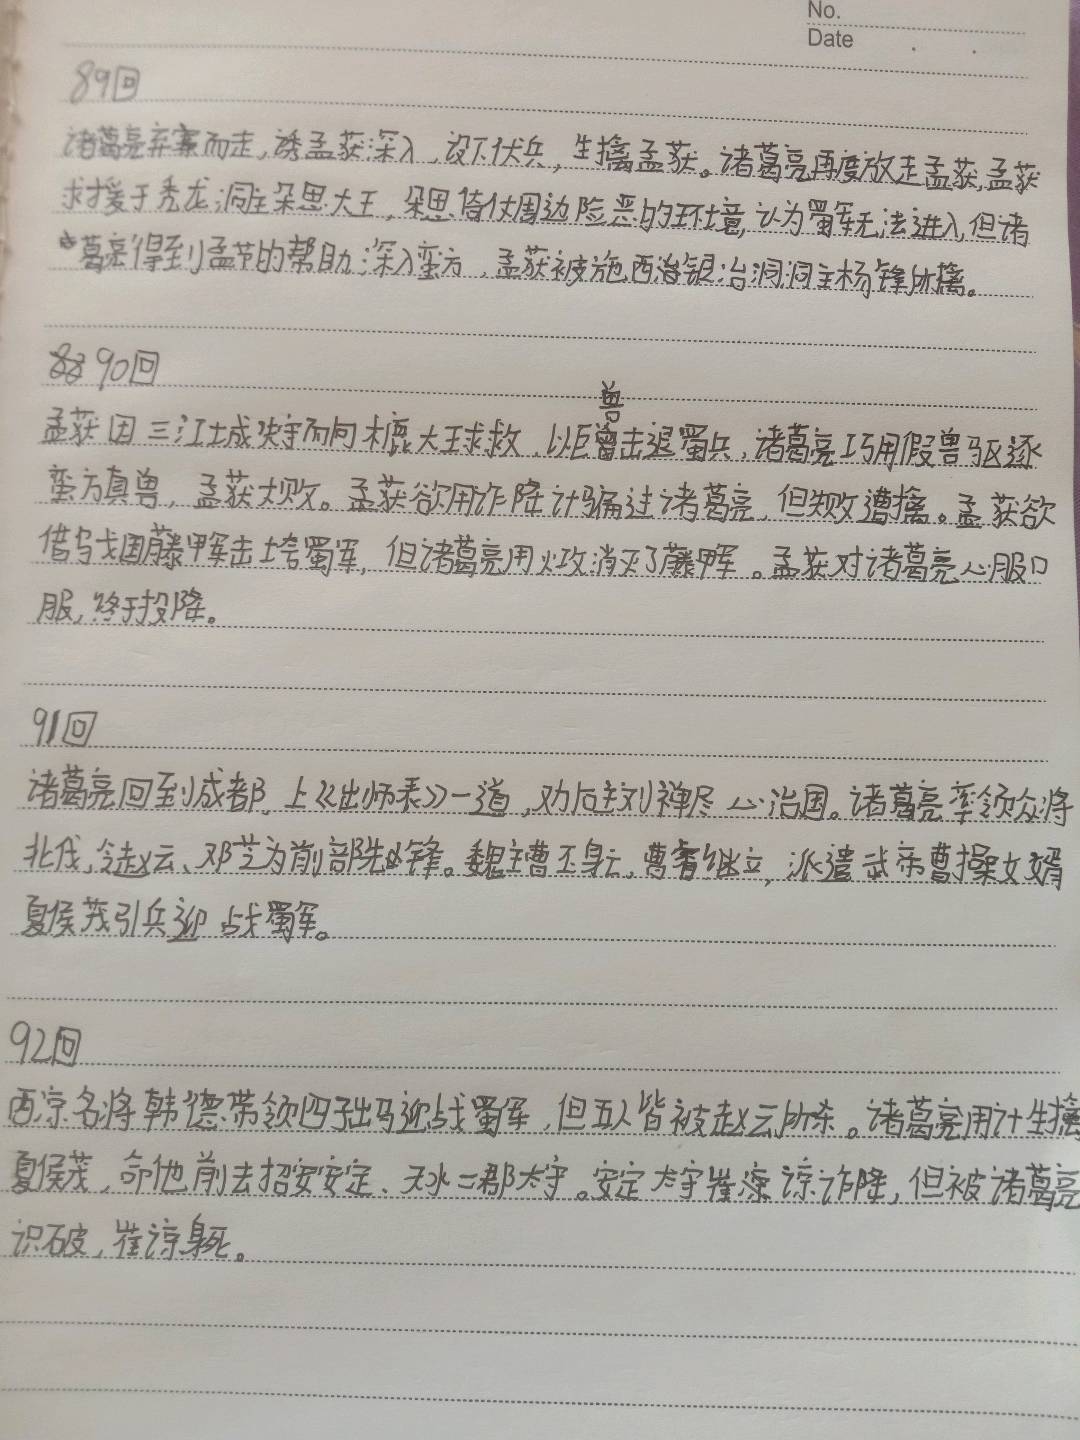 No.
Date
89回
诸葛亮弃寨而走,诱孟获深入,设下伏兵,生擒孟获。诸葛亮再度放走孟获,孟获
求援于秃龙洞主朵思大王,朵思倚仗周边险恶的环境,认为蜀军无法进入,但诸
葛亮得到孟节的帮助,深入蛮方,孟获被施西洛银冶洞洞主杨锋所擒。
90回
孟获因三江城失守而向木鹿大王求救,以巨兽击退蜀兵,诸葛亮巧用假兽驱逐
蛮方真兽,孟获大败。孟获欲用诈降计骗过诸葛亮,但失败遭擒。孟获欲
借乌戈国藤甲军击垮蜀军,但诸葛亮用火攻消灭了藤甲军。孟获对诸葛亮心服口
服,终于投降。
91回
诸葛亮回到成都,上《出师表》一道,劝后主刘禅尽心治国。诸葛亮率领众将
北伐,令赵云、邓芝为前部先锋。魏主曹丕身亡,曹睿继立,派遣武帝曹操女婿
夏侯茂引兵迎战蜀军。
92回
西凉名将韩德带领四子出马迎战蜀军,但五人皆被赵云所杀。诸葛亮用计生擒
夏侯茂,命他前去招安安定、天水二郡太守。安定太守崔谅诈降,但被诸葛亮
识破,崔谅身死。